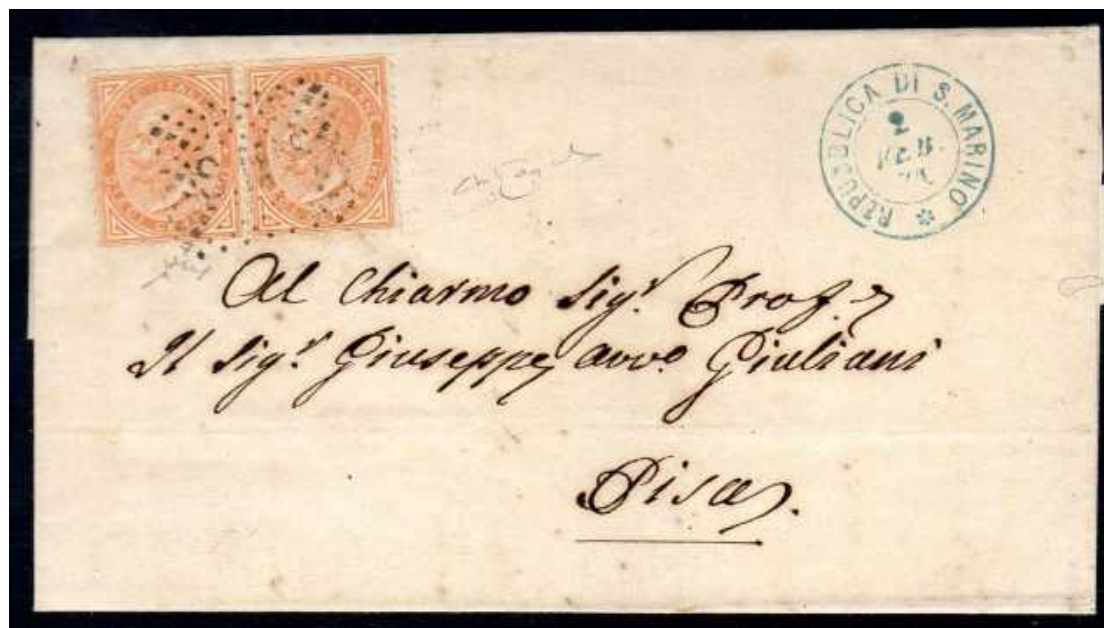 REPUBBLICA DI S. MARINO
2
FEB.
Al Chiarmo Sigr. Prof.r
Il Sigr. Giuseppe avvo. Giuliani
Pisa.